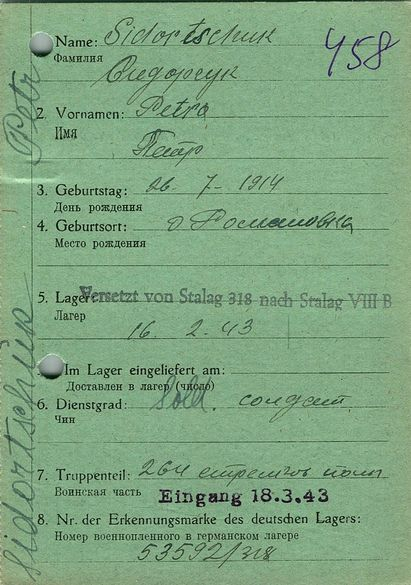 Name: Sidortschuk
Фамилия
458
Сидорсук
2. Vornamen: Petro
Имя
Петр
3. Geburtstag: 26. 7 - 1914
День рождения
4. Geburtsort: д. Романовка
Место рождения
5. Lager: Versetzt von Stalag 318 nach Stalag VIII B
Лагер
16. 2. 43
Im Lager eingeliefert am:
Доставлен в лагер (число)
6. Dienstgrad: Sold. солдат
Чин
7. Truppenteil: 264 стрелков полк
Воинская часть
Eingang 18.3.43
8. Nr. der Erkennungsmarke des deutschen Lagers:
Номер военнопленного в германском лагере
53592/318
Sidortschuk Petr